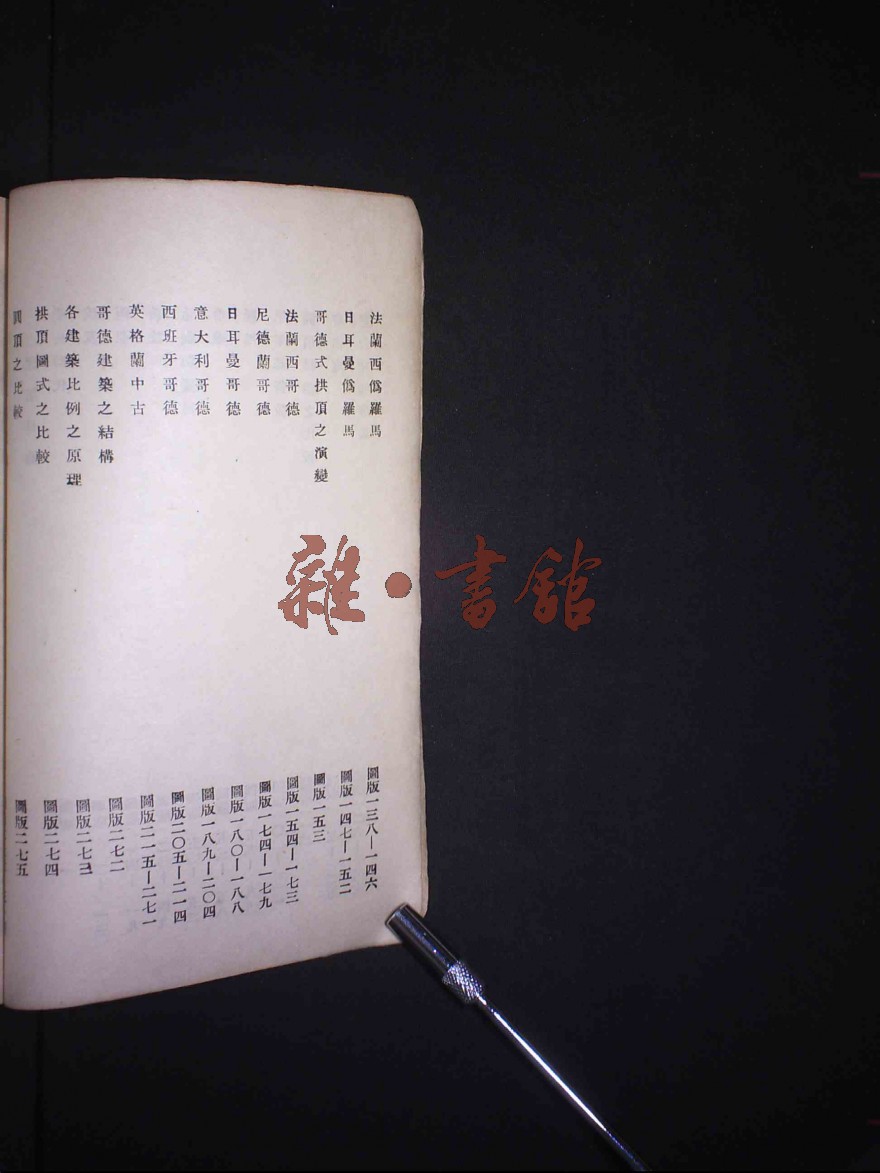 法蘭西僞羅馬 圖版一三八—一四六
日耳曼僞羅馬 圖版一四七—一五二
哥德式拱頂之演變 圖版一五三
法蘭西哥德 圖版一五四—一七三
尼德蘭哥德 圖版一七四—一七九
日耳曼哥德 圖版一八〇—一八八
意大利哥德 圖版一八九—二〇四
西班牙哥德 圖版二〇五—二一四
英格蘭中古 圖版二一五—二七一
哥德建築之結構 圖版二七二
各建築比例之原理 圖版二七三
拱頂圖式之比較 圖版二七四
頂之比較 圖版二七五
雜·書館